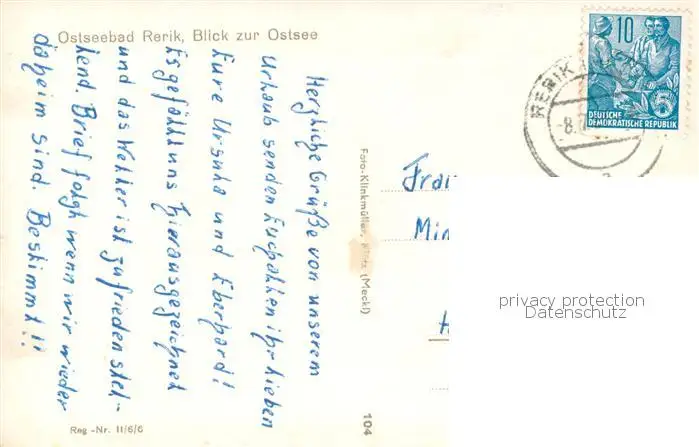 Ostseebad Rerik, Blick zur Ostsee
Herzliche Grüße von unserem
Urlaub senden Euch allen ihr lieben
Eure Ursula und Eberhard!
Es gefällt uns hier ausgezeichnet
und das Wetter ist zufriedenstel-
lend. Brief folgt wenn wir wieder
daheim sind. Bestimmt!!
Reg.-Nr. 11/6/6
Foto-Klinkmüller, (Meckl)
104
RERIK
-8.
10
DEUTSCHE
DEMOKRATISCHE REPUBLIK
Min
H
privacy protection
Datenschutz